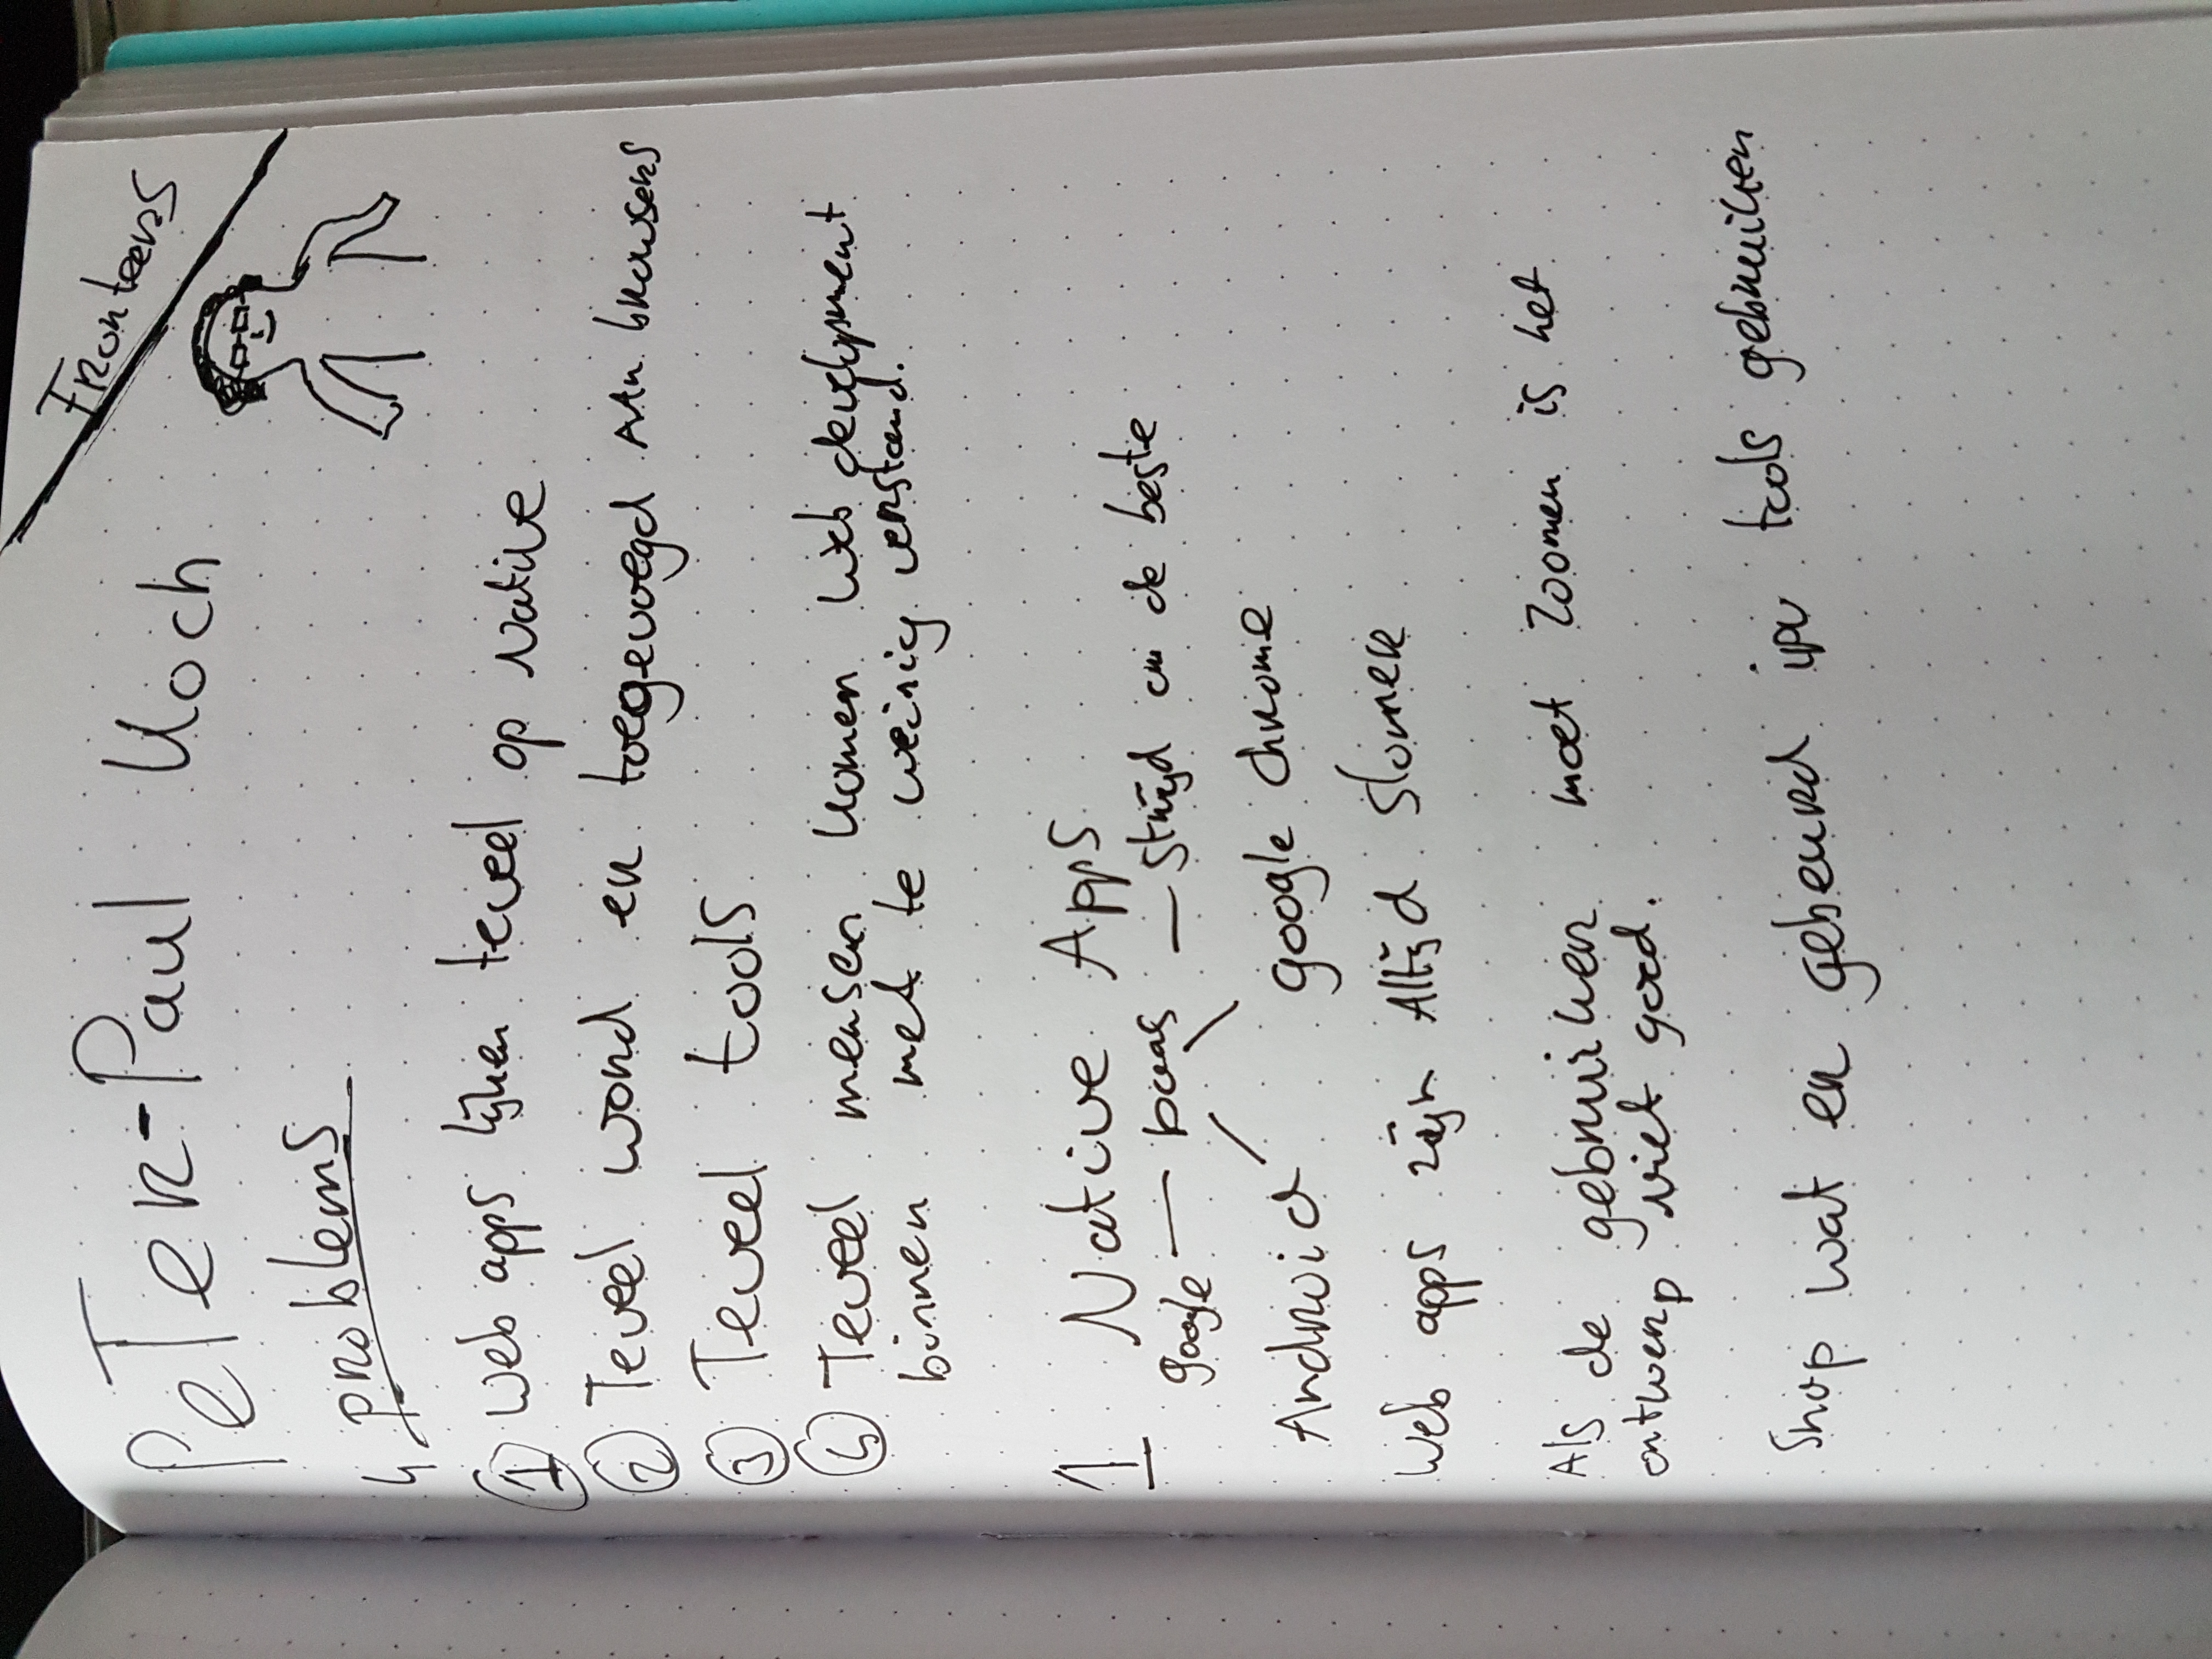 Fronteers
Peter-Paul Koch
4 problems
1 Web apps lijken teveel op Native
2 Teveel word er toegevoegd AAn browsers
3 Teveel tools
4 Teveel mensen komen Web development
binnen met te weinig verstand.
1 Native Apps
google — baas — strijd om de beste
Android google Chrome
Web apps zijn Altijd slomer
Als de gebruiker moet zoomen is het
ontwerp niet goed.
Snap wat er gebeurd ipv tools gebruiken